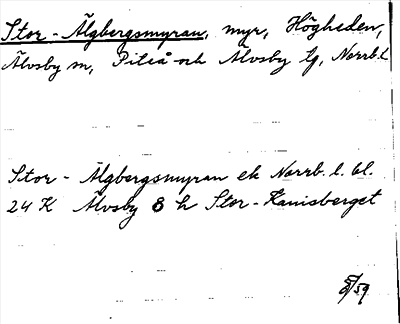 Stor-Älgbergsmyran, myr, Högheden,
Älvsby sn, Piteå och Älvsby tg, Norrb.l.
Stor-Älgbergsmyran ek Norrb. l. bl.
24 K Älvsby 8 h Stor-Kanisberget
/59